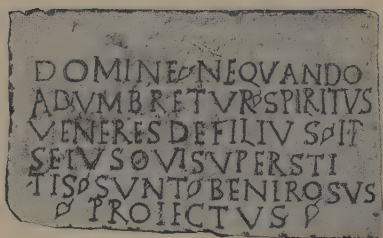 DOMINE NEQVANDO
ADVMBRETVR SPIRITVS
VENERES DEFILIVS IT
SEIVS QVISVPERSTI
TIS SVNT BENIROSVS
PROIECTVS